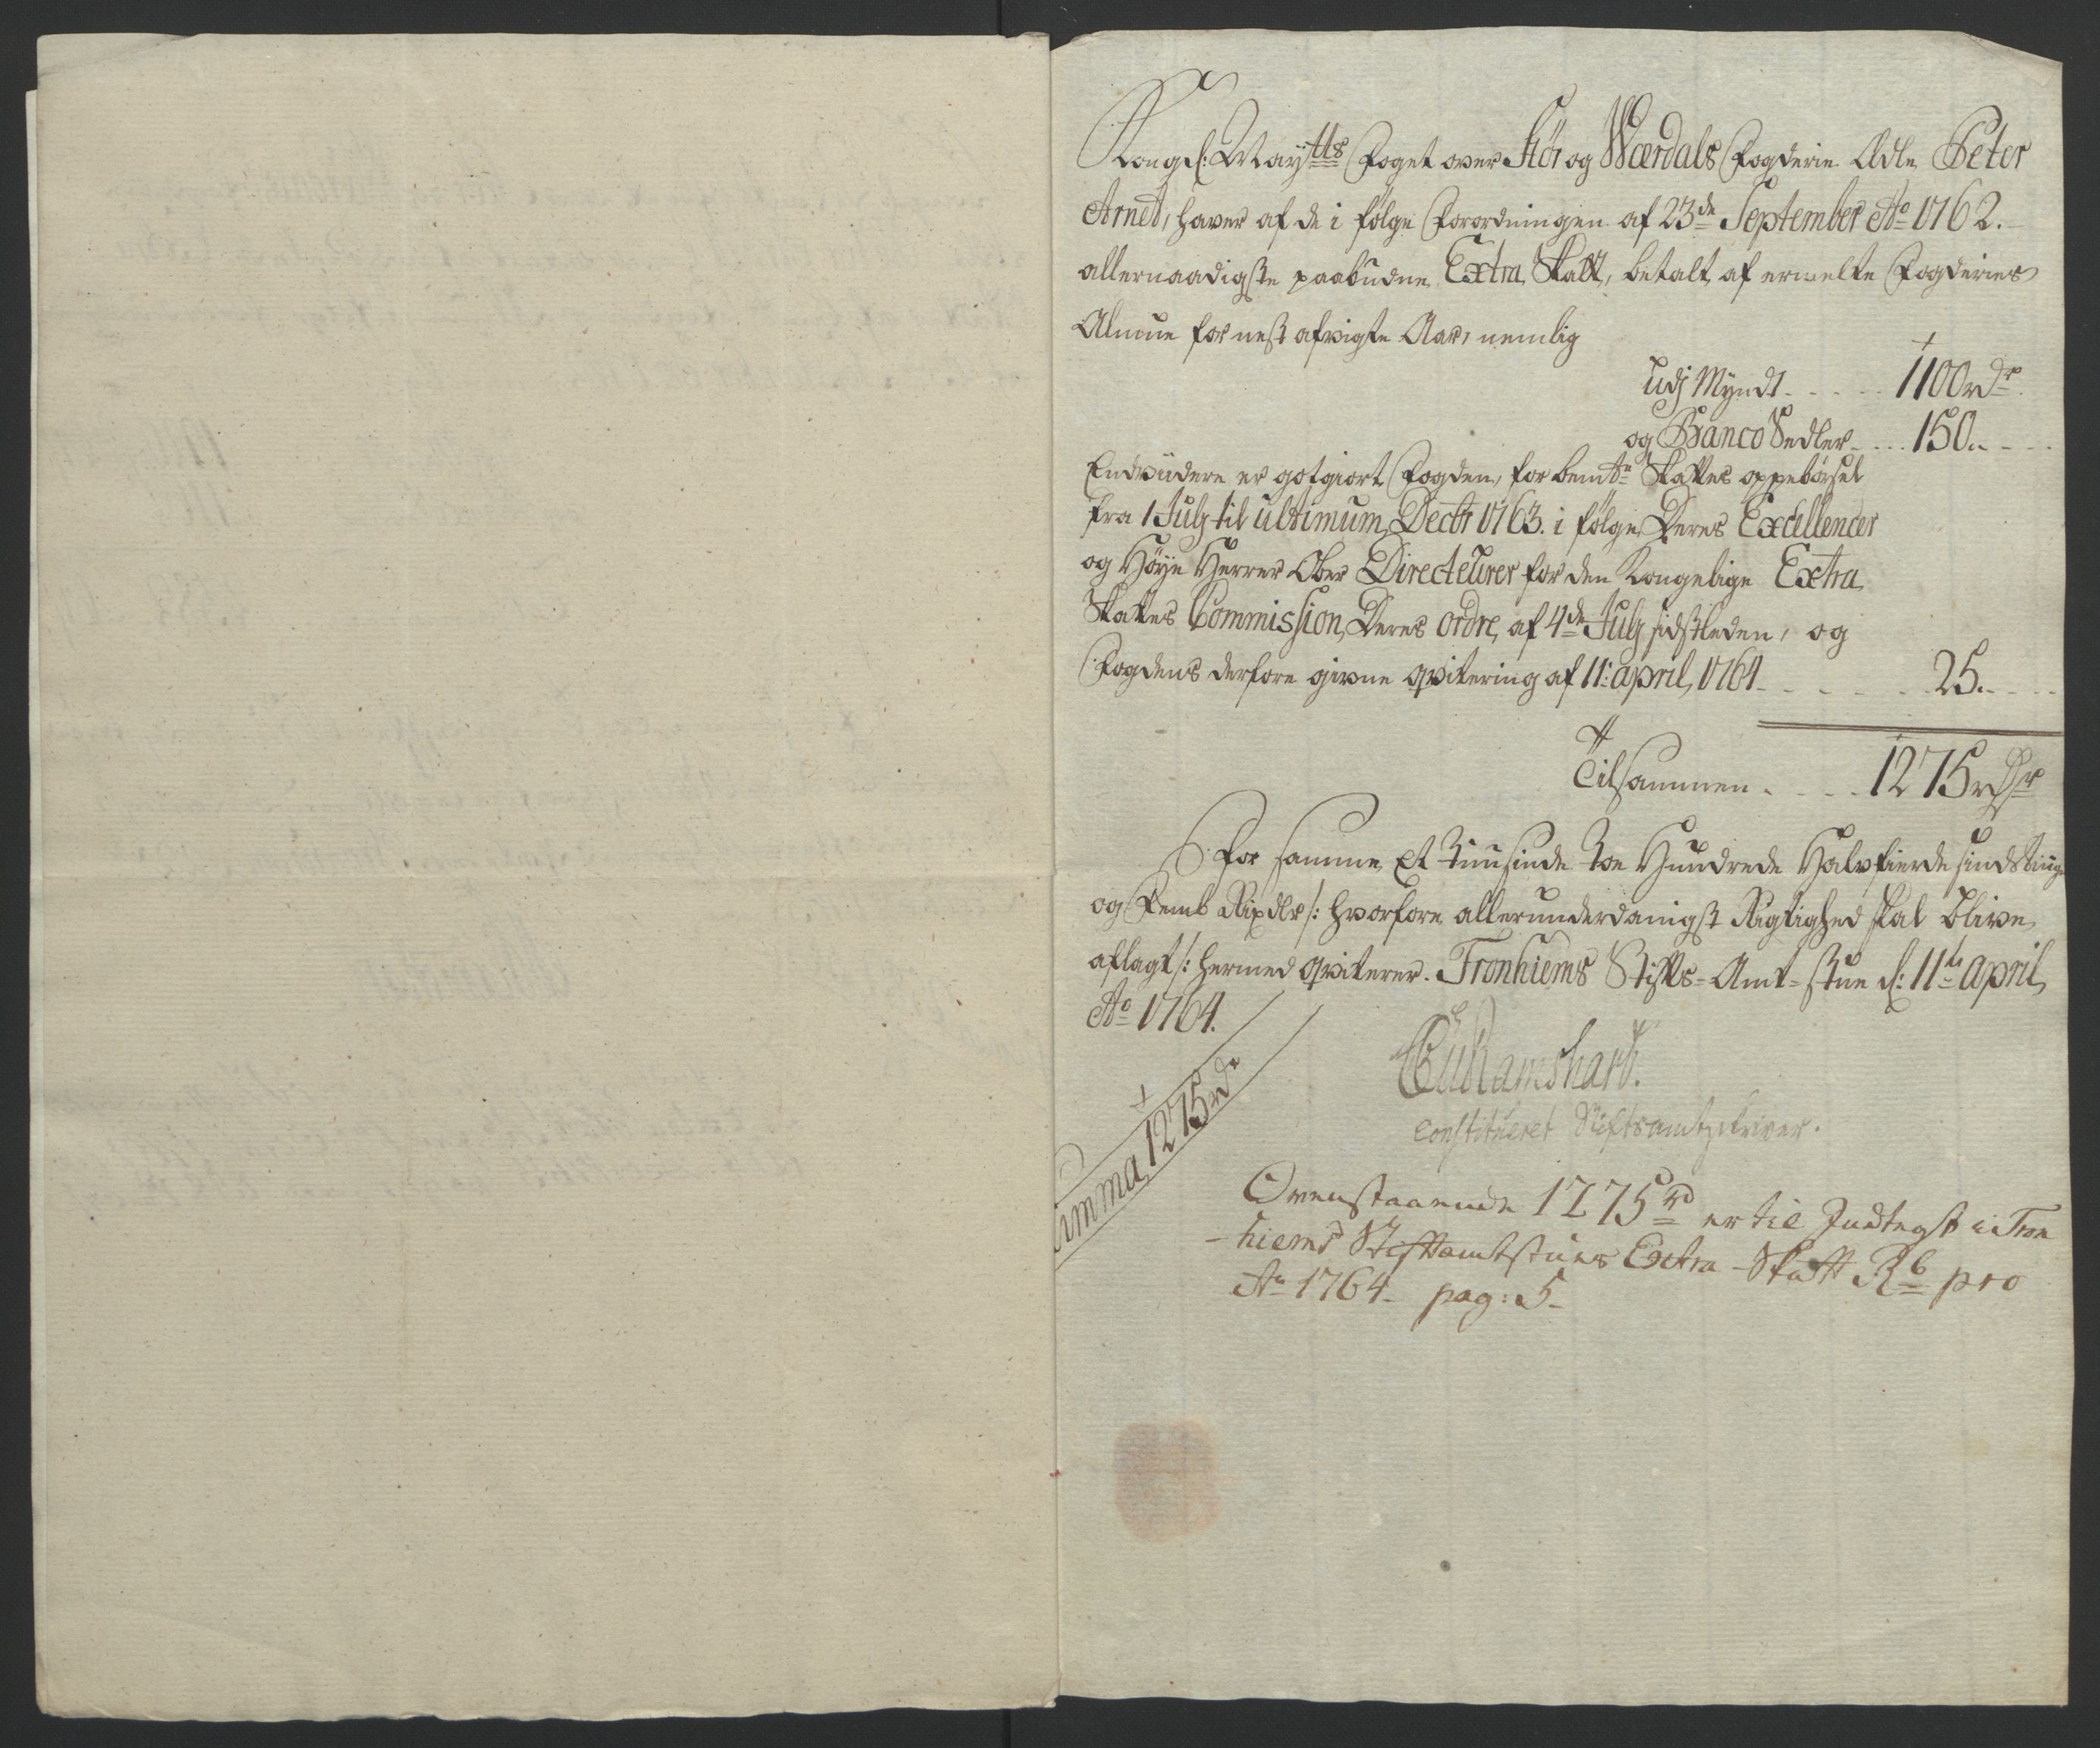 Kongel: Mayttls Foget over Stör og Værdals Fogderie Adle Peter
Arnet, haver af de i fölge Forordningen af 23de September Ao 1762.
allernaadigste paabudne Extra Skatt, betalt af ermelte Fogderies
Almue for nest afvigte Aar, nemlig
Udj Myndt - - - - 1100 rdr
og Banco Sedler - - - 150 - - -
Endvidere er gotgiort Fogden, for bemte Skattes oppebörsel
fra 1 July til ultimum Decbr 1763. i fölge Deres Excellencer
og Höye Herrer Ober Directeurer for den Kongelige Extra
Skattes Commission, Deres ordre, af 4de July sidstleden, og
Fogdens derfore givne qvitering af 11: april, 1764 - - - - - 25. - - -
Tilsammen - - - - 1275 rdr
For samme Et Tuusinde Toe Hundrede Halvfierdesindstiuge
og Femb Rixdlr /: hvorfore allerunderdanigst Rigtighed skal blive
aflagt /: hermed qviterer. Tronhiems Stifts-Amt-stue d: 11te april,
Ao 1764.
Ramshart.
constitueret Stiftsamtskriver.
Summa 1275 rd
Ovenstaaende 1275 rd er til Indtegt i Tron
-hiems Stiftamtstues Extra-Skatt Rb pro
Ao 1764 - pag: 5 -